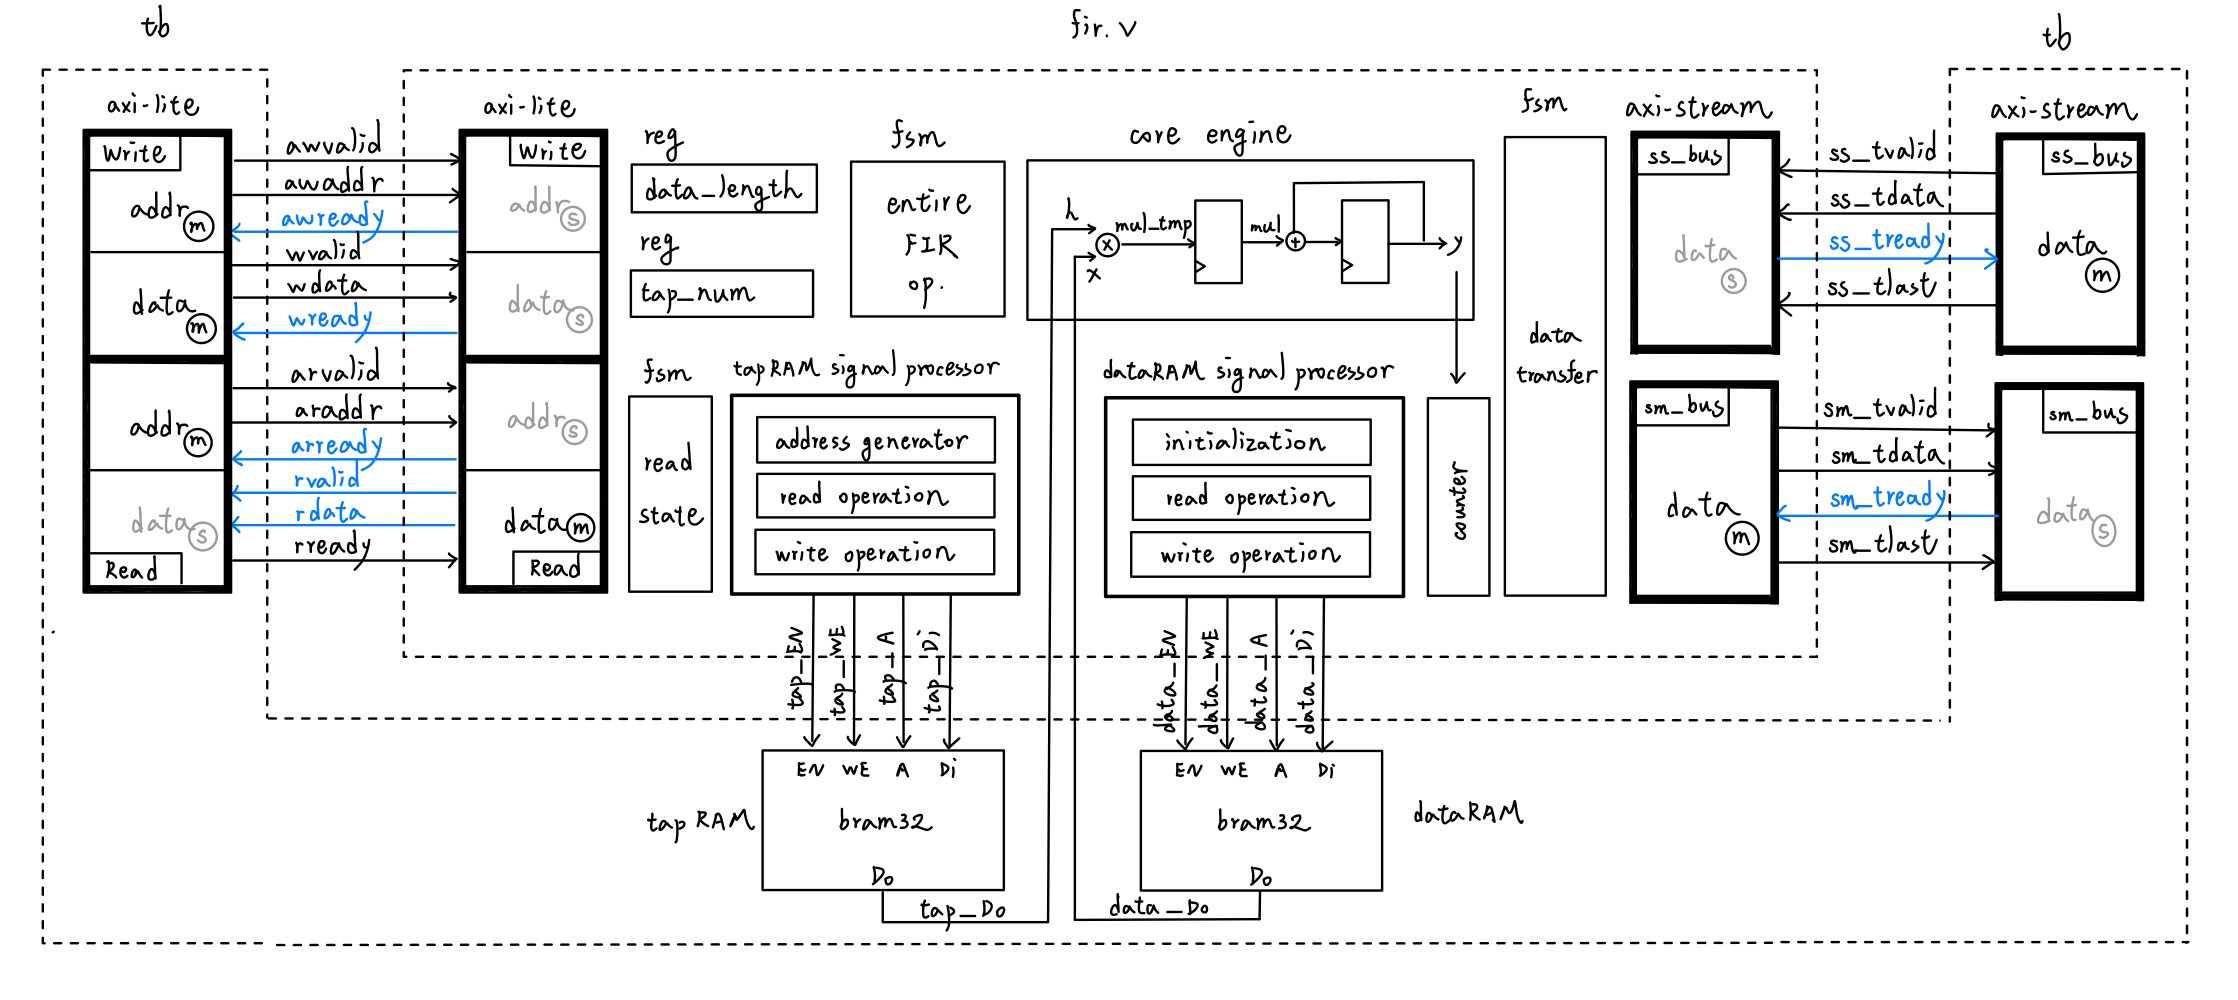 tb
fir.v
tb
axi-lite
Write
addr m
data m
addr m
data s
Read
awvalid
awaddr
awready
wvalid
wdata
wready
arvalid
araddr
arready
rvalid
rdata
rready
axi-lite
Write
addr s
data s
addr s
data m
Read
reg
data_length
reg
tap_num
fsm
entire
FIR
op.
core engine
h
x
x
mul_tmp
mul
+
y
fsm
read
state
tapRAM signal processor
address generator
read operation
write operation
dataRAM signal processor
initialization
read operation
write operation
counter
fsm
data
transfer
axi-stream
ss_bus
data s
sm_bus
data m
ss_tvalid
ss_tdata
ss_tready
ss_tlast
sm_tvalid
sm_tdata
sm_tready
sm_tlast
axi-stream
ss_bus
data m
sm_bus
data s
tap_EN
tap_WE
tap_A
tap_Di
data_EN
data_WE
data_A
data_Di
tapRAM
EN WE A Di
bram32
Do
tap_Do
EN WE A Di
bram32
Do
data_Do
dataRAM